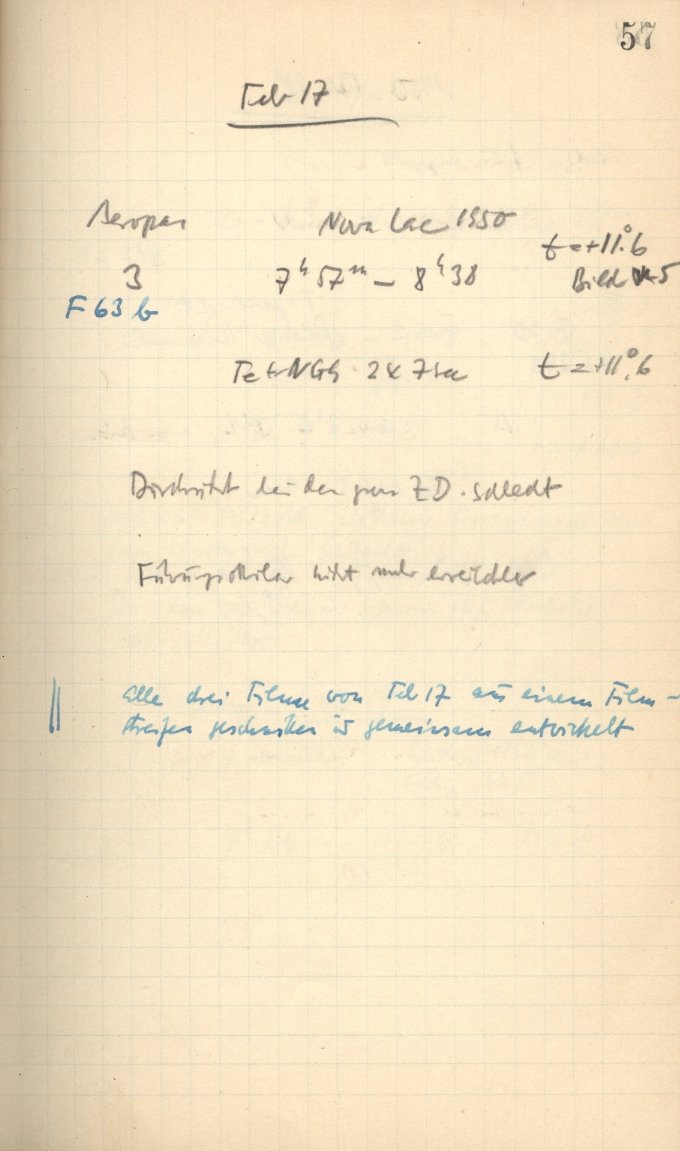 57
Feb 17
Aeropan Nova Lac 1950
t = +11°.6
3 7ʰ 57ᵐ – 8ʰ 38 Bild 5
F 63 b
Te + NGS 2 x 7 sec t = +11°.6
Durchsicht bei der ZD. schlecht
nicht mehr erreichbar
Alle drei Filme von Feb 17 aus einem Film-
streifen geschnitten u gemeinsam entwickelt